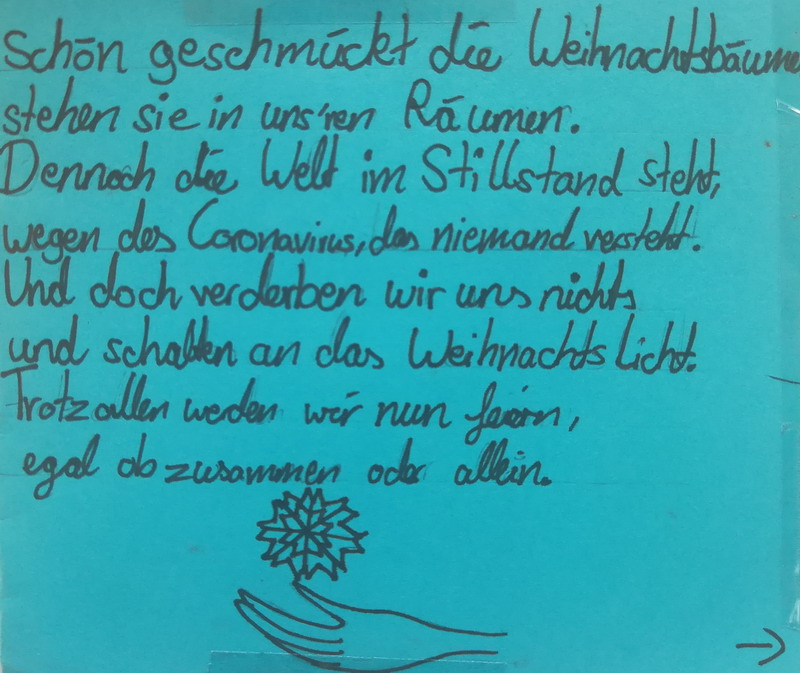 Schön geschmückt die Weihnachtsbäume
stehen sie in uns'ren Räumen.
Dennoch die Welt im Stillstand steht,
wegen des Coronavirus, das niemand versteht.
Und doch verderben wir uns nichts
und schalten an das Weihnachtslicht.
Trotz allen werden wir nun feiern,
egal ob zusammen oder allein.
→